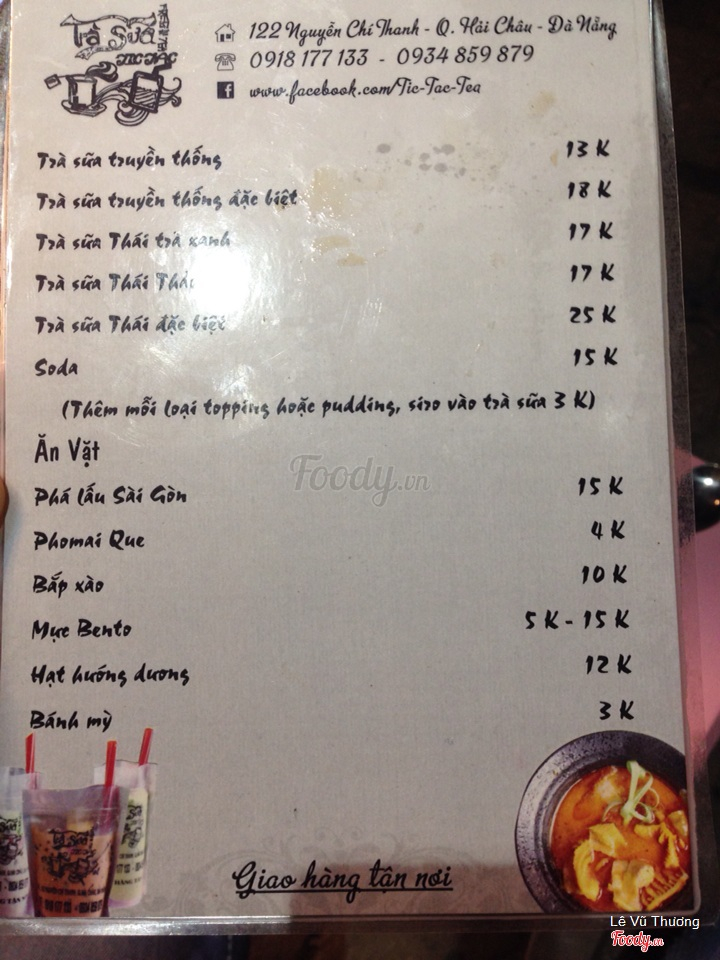 Trà Sữa
122 Nguyễn Chí Thanh - Q. Hải Châu - Đà Nẵng
0918 177 133 - 0934 859 879
www.facebook.com/Tic-Tac-Tea
Trà sữa truyền thống 13 K
Trà sữa truyền thống đặc biệt 18 K
Trà sữa Thái trà xanh 17 K
Trà sữa Thái 17 K
Trà sữa Thái đặc biệt 25 K
Soda 15 K
(Thêm mỗi loại topping hoặc pudding, siro vào trà sữa 3 K)
Ăn Vặt
Foody.vn
Phá lấu Sài Gòn 15 K
Phomai Que 4 K
Bắp xào 10 K
Mực Bento 5 K - 15 K
Hạt hướng dương 12 K
Bánh mỳ 3 K
Giao hàng tận nơi
Lê Vũ Thương
Foody.vn